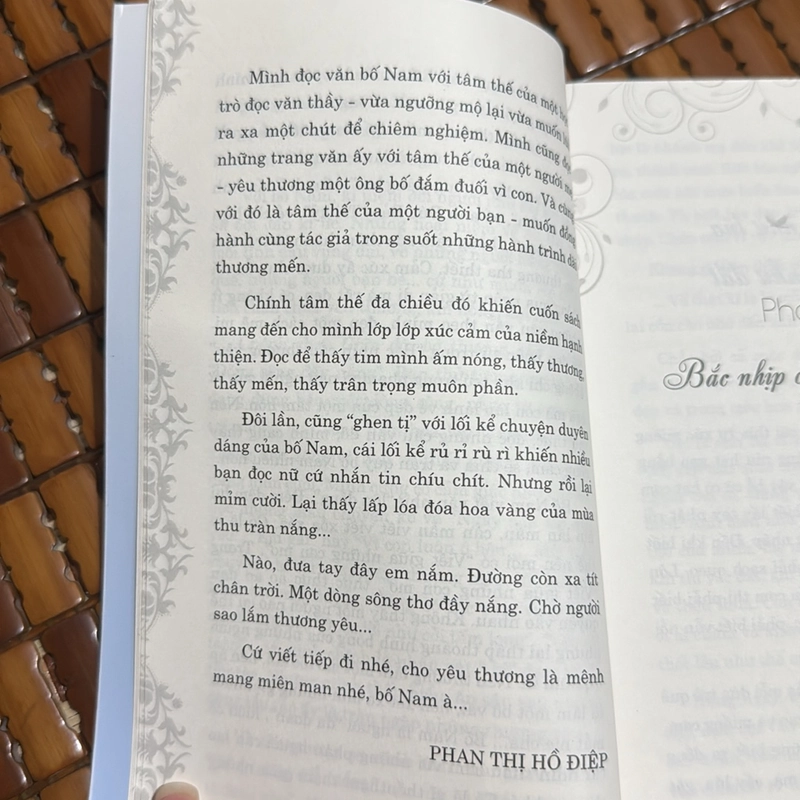 Mình đọc văn bố Nam với tâm thế của một
trò đọc văn thầy - vừa ngưỡng mộ lại vừa muốn
ra xa một chút để chiêm nghiệm. Mình cũng
những trang văn ấy với tâm thế của một người
- yêu thương một ông bố đắm đuối vì con. Và cùng
với đó là tâm thế của một người bạn - muốn đồng
hành cùng tác giả trong suốt những hành trình
thương mến.
Chính tâm thế đa chiều đó khiến cuốn sách
mang đến cho mình lớp lớp xúc cảm của niềm hạnh
thiện. Đọc để thấy tim mình ấm nóng, thấy thương
thấy mến, thấy trân trọng muôn phần.
Đôi lần, cũng “ghen tị” với lối kể chuyện duyên
dáng của bố Nam, cái lối kể rủ rỉ rù rì khiến nhiều
bạn đọc nữ cứ nhắn tin chíu chít. Nhưng rồi lại
mỉm cười. Lại thấy lấp lóa đóa hoa vàng của mùa
thu tràn nắng...
Nào, đưa tay đây em nắm. Đường còn xa tít
chân trời. Một dòng sông thơ đầy nắng. Chờ người
sao lắm thương yêu...
Cứ viết tiếp đi nhé, cho yêu thương là mênh
mang miên man nhé, bố Nam à...
PHAN THỊ HỒ ĐIỆP
Bắc nhịp